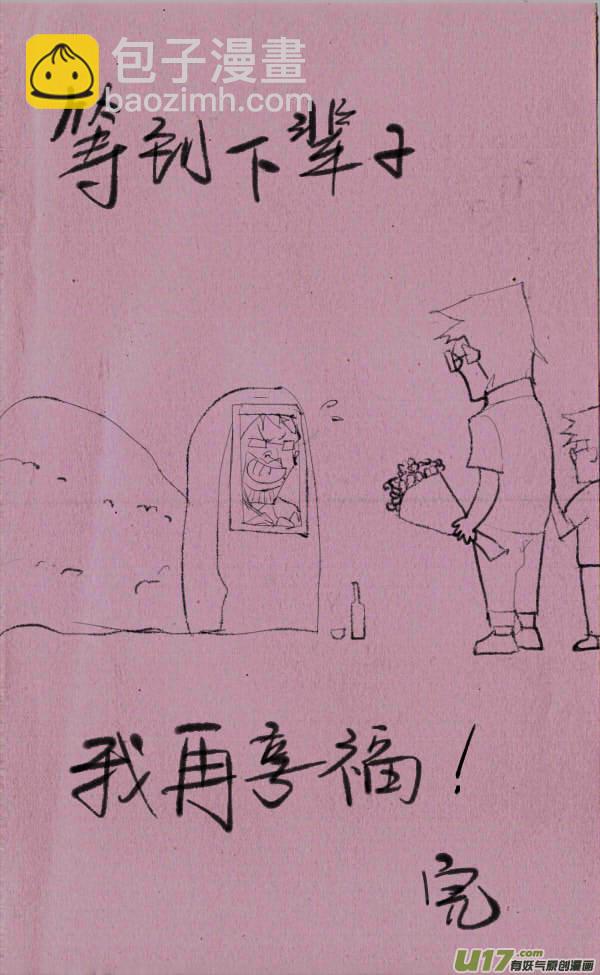 包子漫畫
baozimh.com
等到下辈子
我再享福！
完
U17.com
有妖气原创漫画